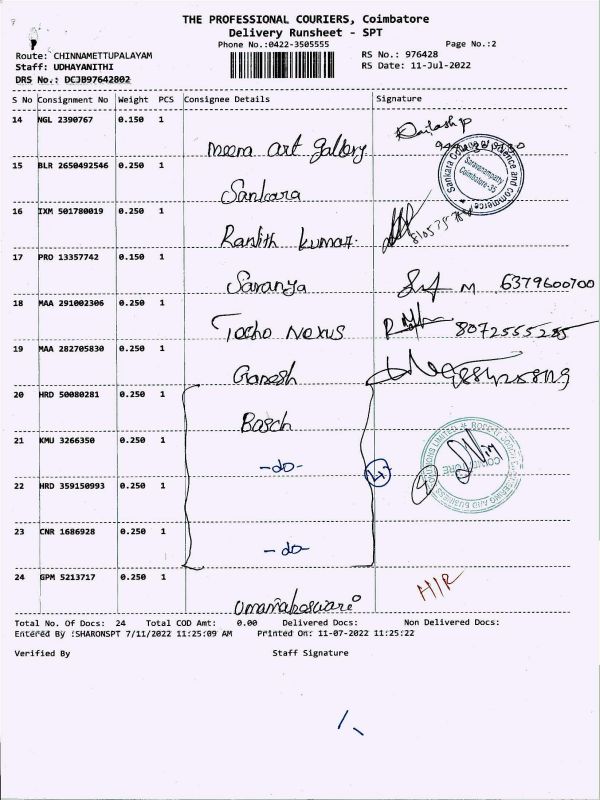 THE PROFESSIONAL COURIERS, Coimbatore
Delivery Runsheet - SPT
Phone No.:0422-3505555 Page No.:2
Route: CHINNAMETTUPALAYAM RS No.: 976428
Staff: UDHAYANITHI RS Date: 11-Jul-2022
DRS No.: DCJB97642802
S No Consignment No Weight PCS Consignee Details Signature
14 NGL 2390767 0.150 1 meera art gallery
15 BLR 2650492546 0.250 1 Sankara
Saravanampatty
Coimbatore-35
16 IXM 501780019 0.250 1 Ranjith kumar
17 PRO 13357742 0.150 1 Saranya M 6379600700
18 MAA 291002306 0.250 1 Tocho Nexus 8072555285
19 MAA 282705830 0.250 1 Ganesh
20 HRD 50080281 0.250 1 Bosch
21 KMU 3266350 0.250 1 -do-
22 HRD 359150993 0.250 1
23 CNR 1686928 0.250 1 -do-
24 GPM 5213717 0.250 1 Umamaheswari H/R
Total No. Of Docs: 24 Total COD Amt: 0.00 Delivered Docs: Non Delivered Docs:
Entered By :SHARONSPT 7/11/2022 11:25:09 AM Printed On: 11-07-2022 11:25:22
Verified By Staff Signature